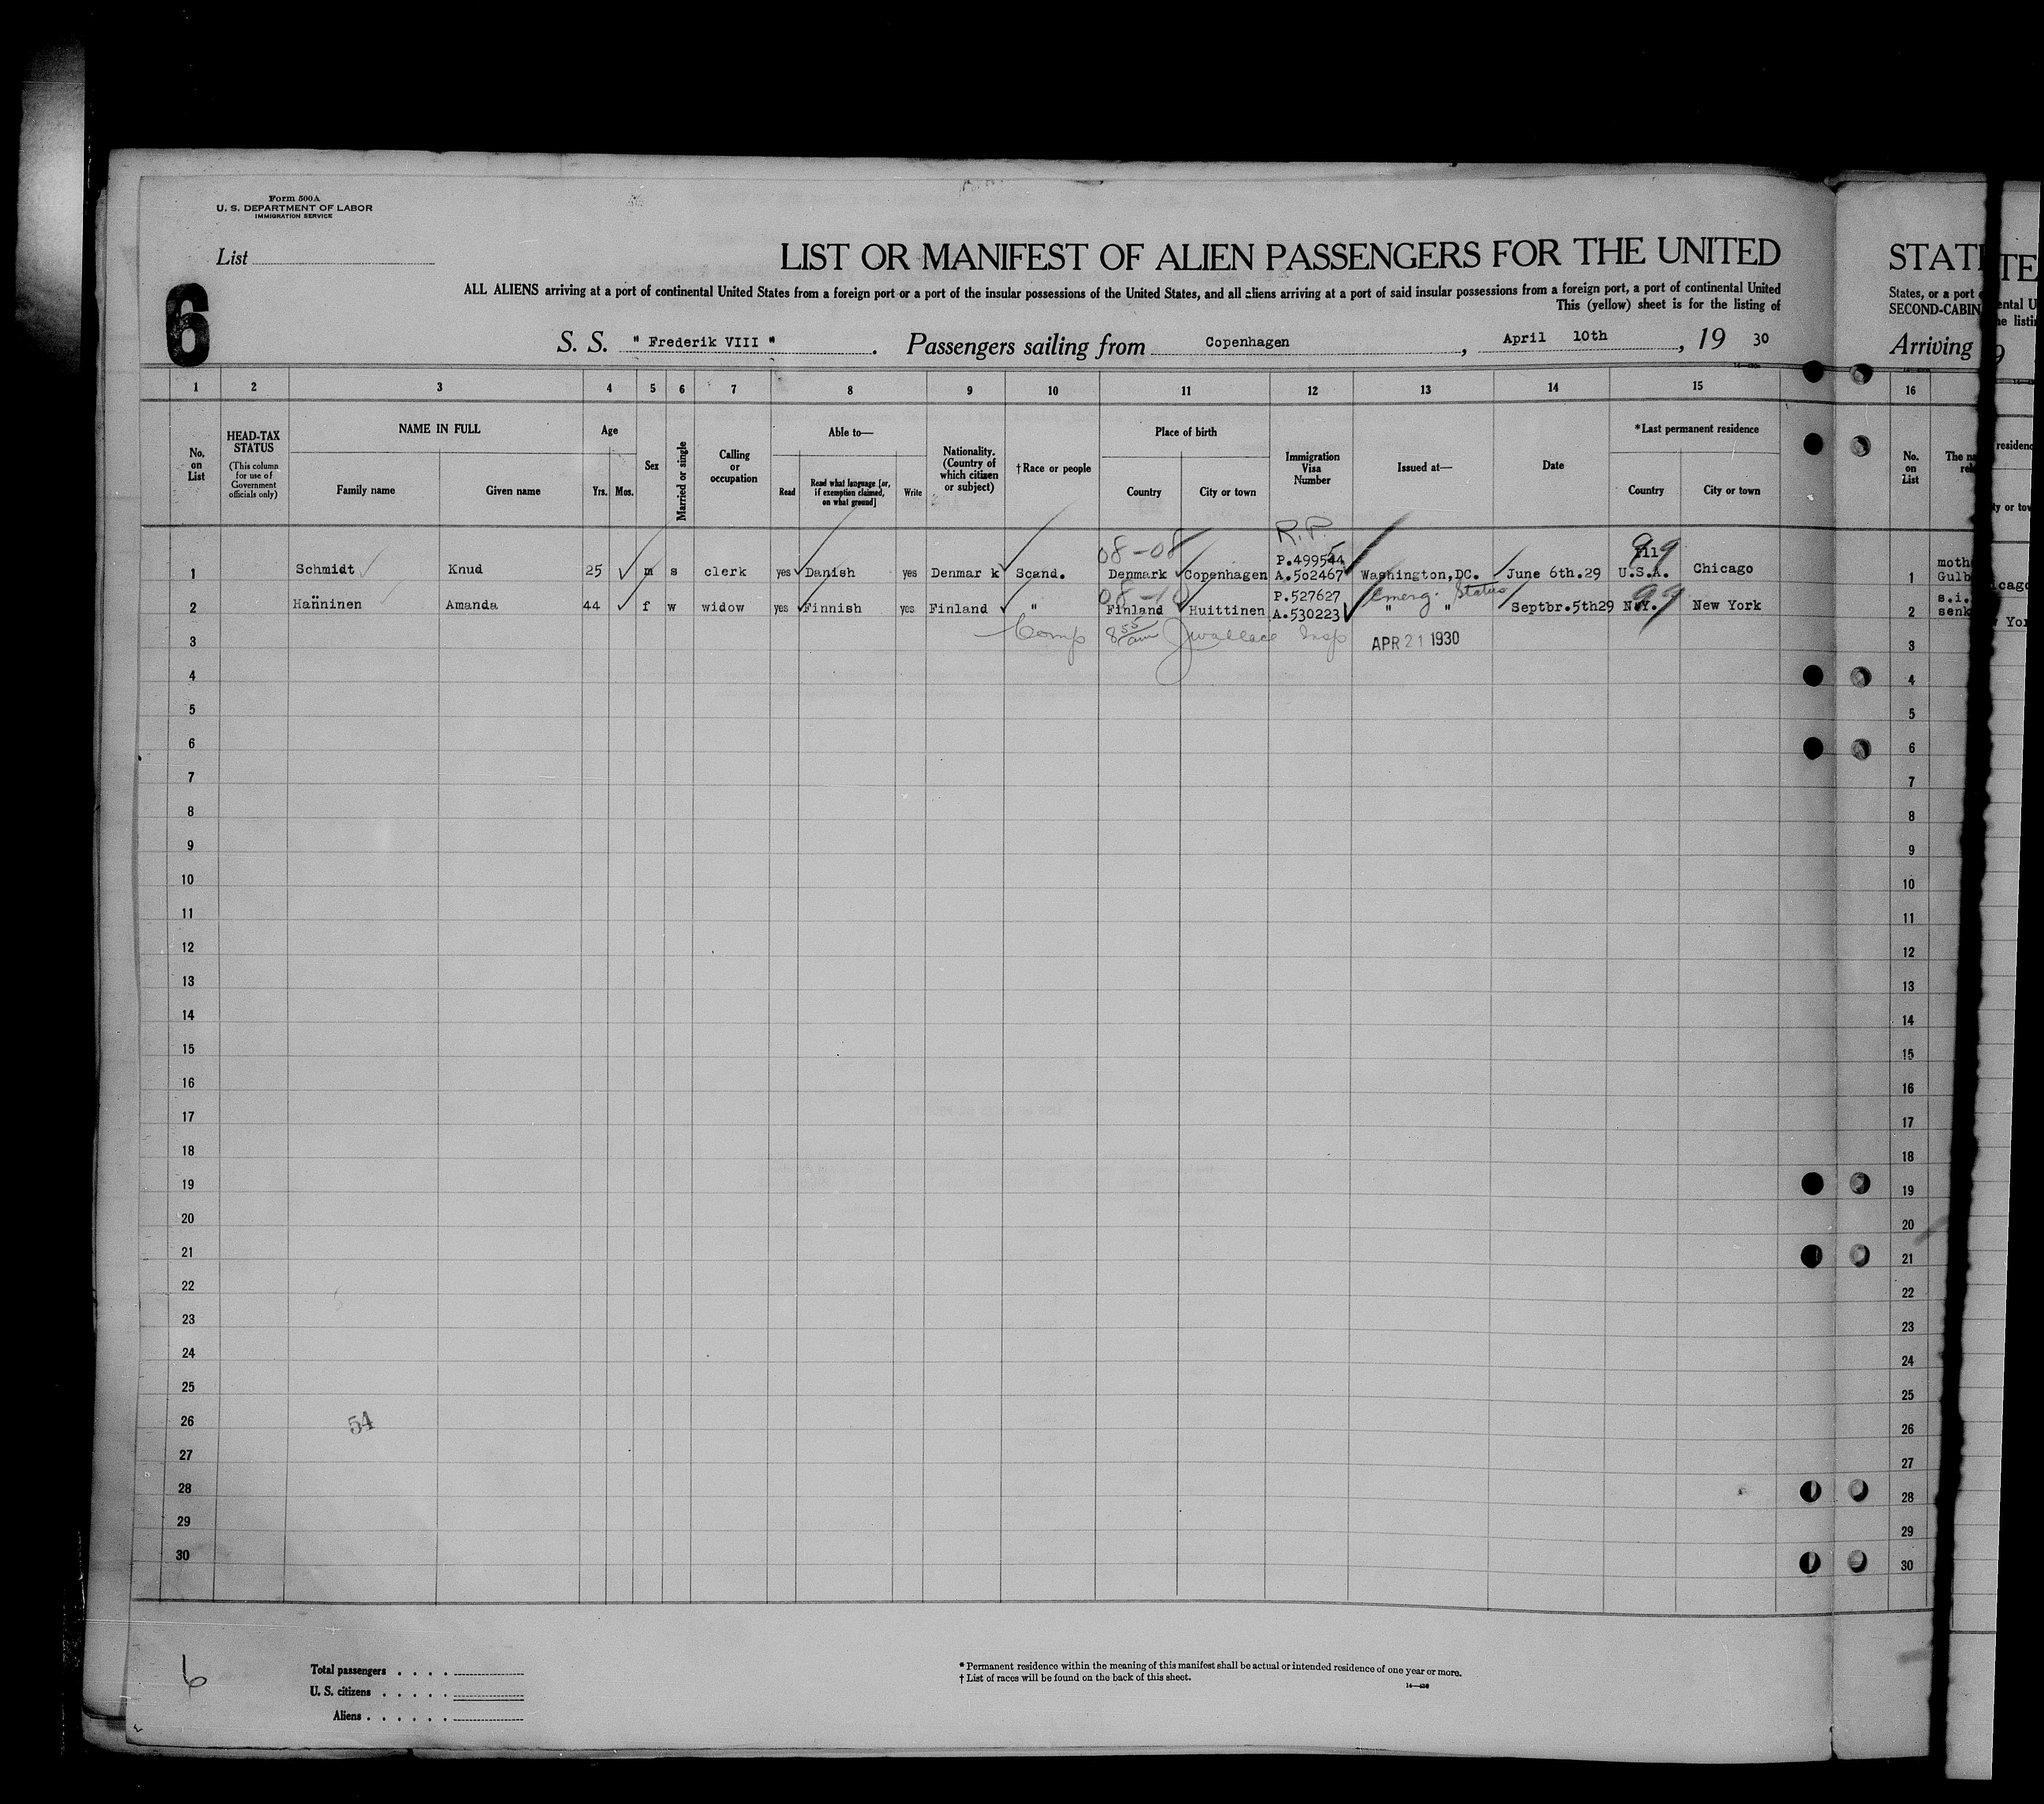 Form 500A
U. S. DEPARTMENT OF LABOR
IMMIGRATION SERVICE
List
6
LIST OR MANIFEST OF ALIEN PASSENGERS FOR THE UNITED
ALL ALIENS arriving at a port of continental United States from a foreign port or a port of the insular possessions of the United States, and all aliens arriving at a port of said insular possessions from a foreign port, a port of continental United
This (yellow) sheet is for the listing of
S. S. " Frederik VIII " . Passengers sailing from Copenhagen , April 10th , 19 30
STATE
States, or a port
SECOND-CABIN
Arriving
1 2 3 4 5 6 7 8 9 10 11 12 13 14 15 16
No. on List
HEAD-TAX STATUS
(This column for use of Government officials only)
NAME IN FULL
Family name Given name
Age
Yrs. Mos.
Sex
Married or single
Calling or occupation
Able to—
Read Read what language [or, if exemption claimed, on what ground] Write
Nationality. (Country of which citizen or subject)
†Race or people
Place of birth
Country City or town
Immigration Visa Number
Issued at—
Date
*Last permanent residence
Country City or town
No. on List
R.P.
08-08 P.499544 Ill 99
1 Schmidt Knud 25 m s clerk yes Danish yes Denmar k Scand. Denmark Copenhagen A.502467 Washington,DC. June 6th.29 U.S.A. Chicago 1
08-10 P.527627 emerg. Status 99
2 Hänninen Amanda 44 f w widow yes Finnish yes Finland " Finland Huittinen A.530223 " " Septbr.5th29 N.Y. New York 2
3 Comp 8 55/am J Wallace Insp APR 21 1930 3
4 4
5 5
6 6
7 7
8 8
9 9
10 10
11 11
12 12
13 13
14 14
15 15
16 16
17 17
18 18
19 19
20 20
21 21
22 22
23 23
24 24
25 25
26 54 26
27 27
28 28
29 29
30 30
6
Total passengers . . . .
U. S. citizens . . . . .
Aliens . . . . . .
* Permanent residence within the meaning of this manifest shall be actual or intended residence of one year or more.
† List of races will be found on the back of this sheet.
14—430